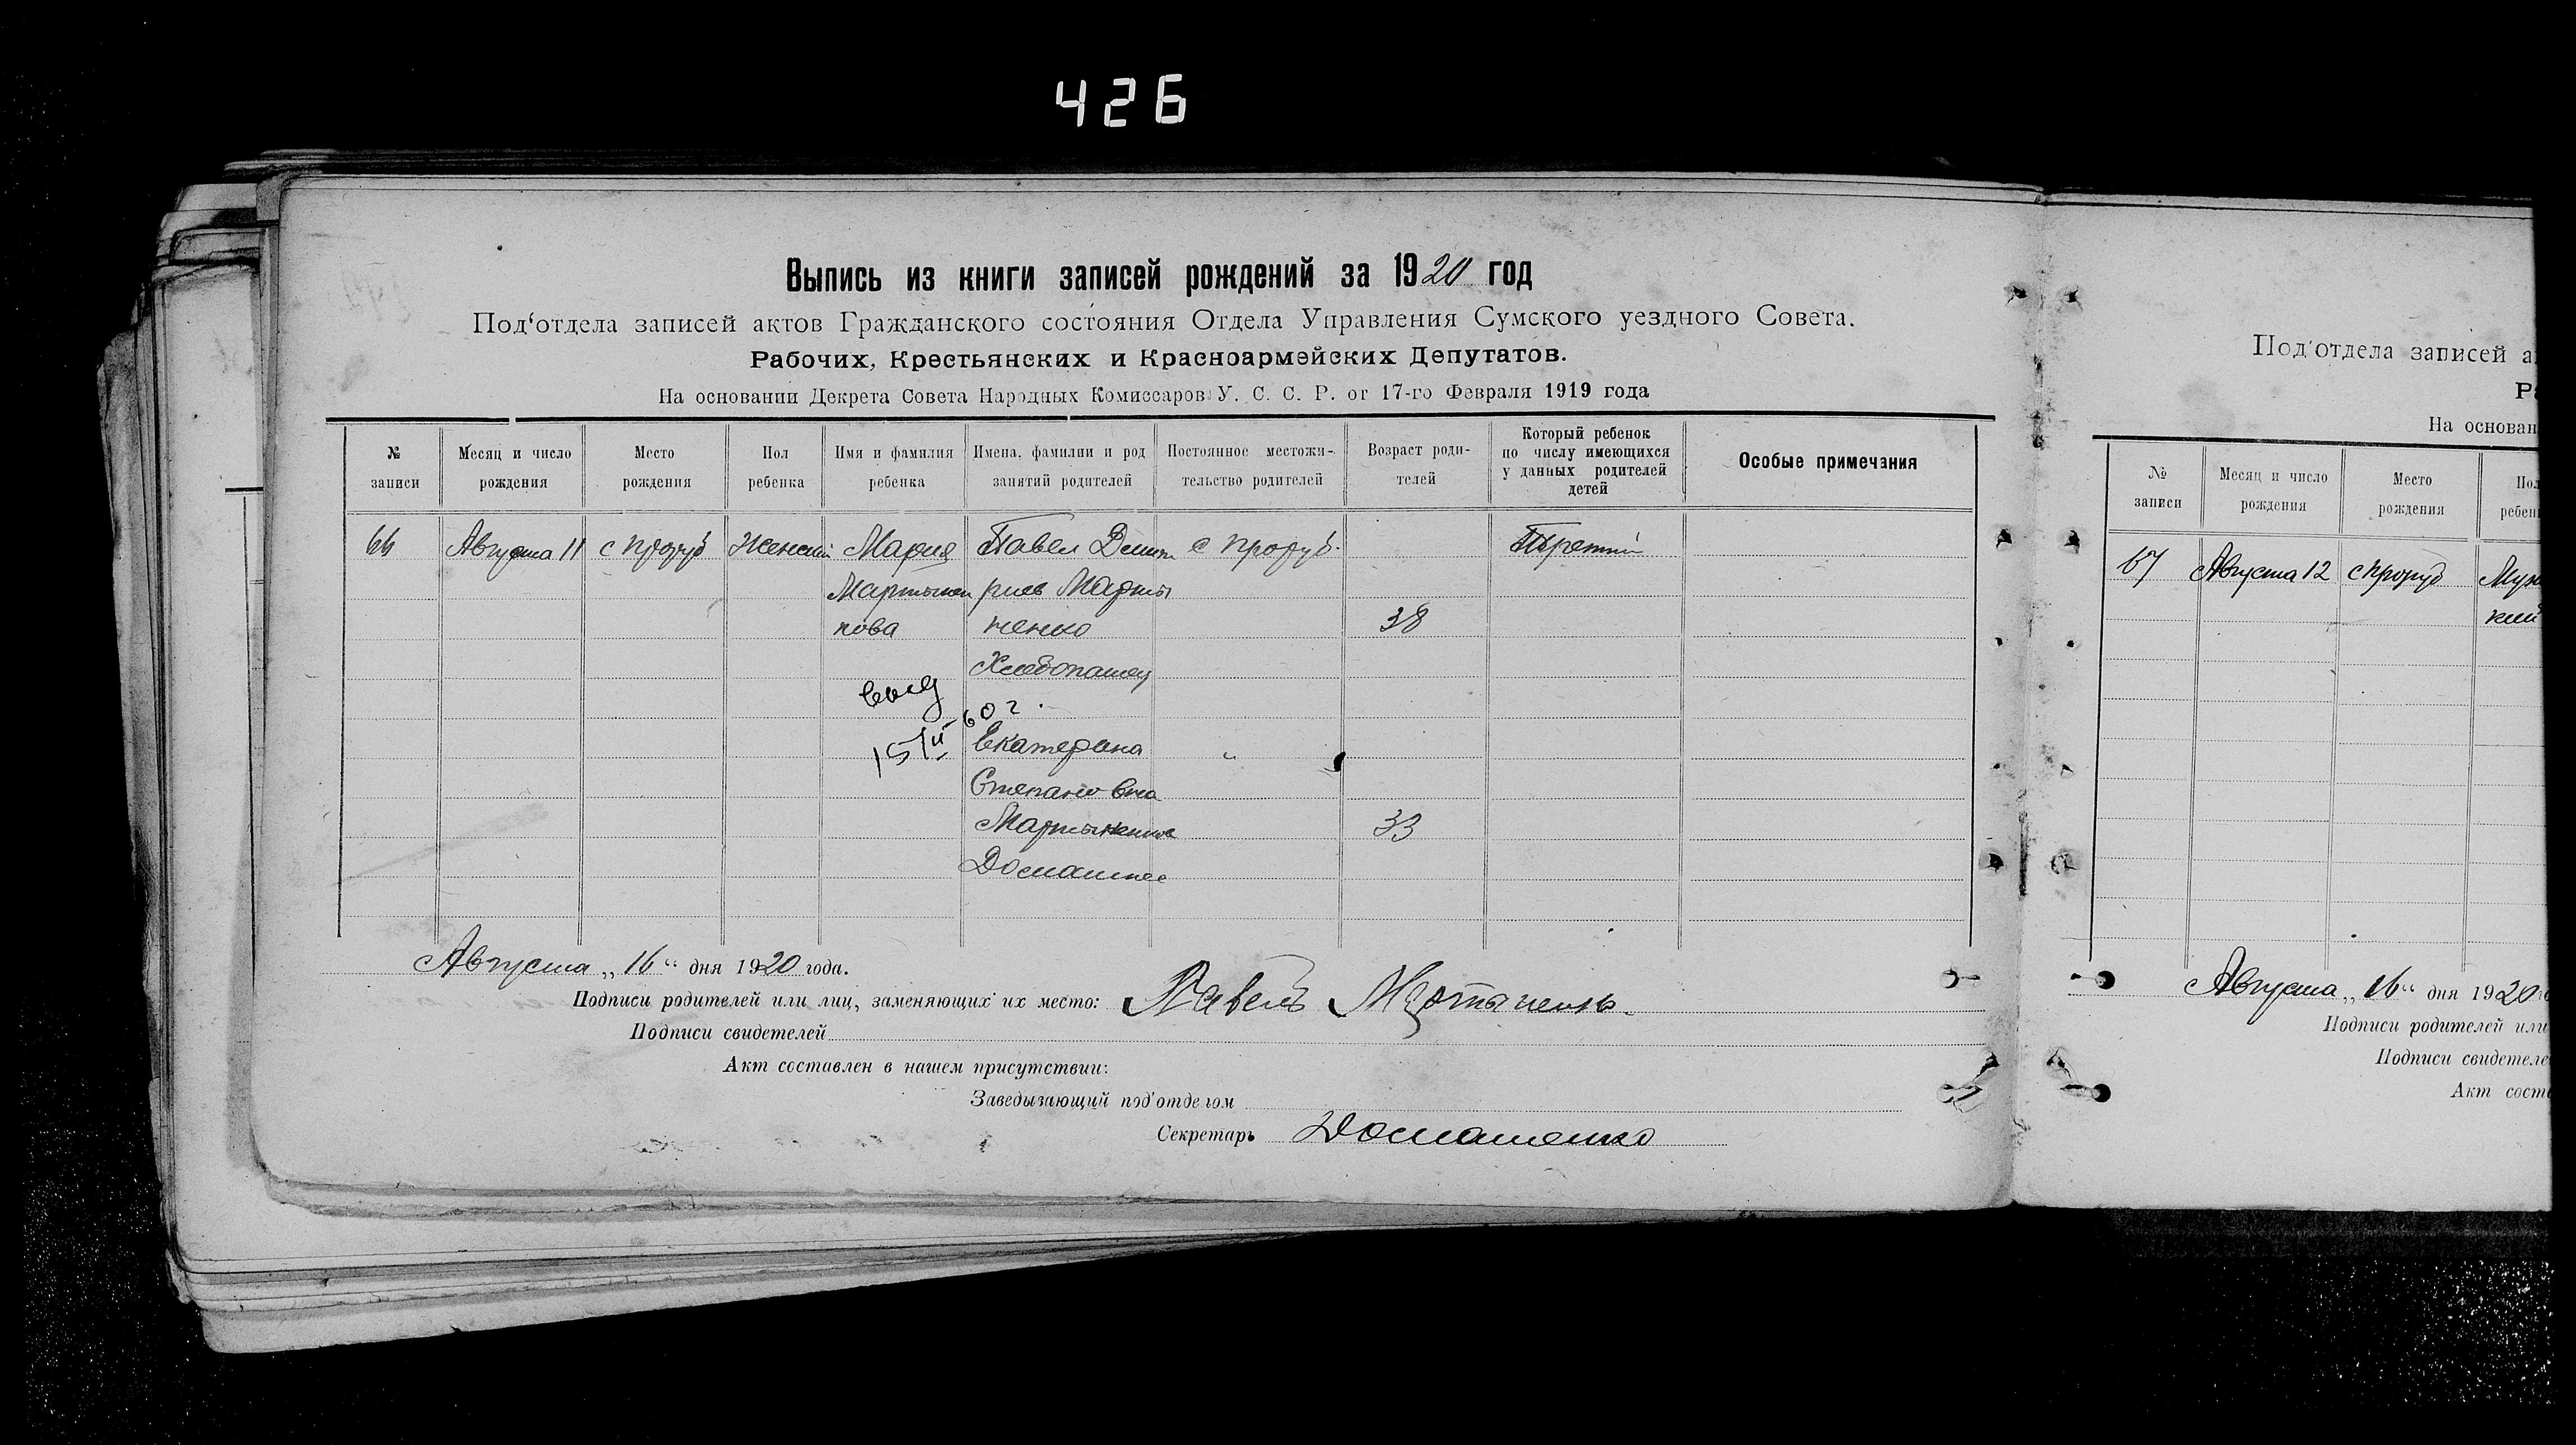 426
Выпись из книги записей рождений за 1920 год
Под‘отдела записей актов Гражданского состояния Отдела Управления Сумского уездного Совета.
Рабочих, Крестьянских и Красноармейских Депутатов.
На основании Декрета Совета Народных Комиссаров У. С. С. Р. от 17-го Февраля 1919 года
№ записи
Месяц и число рождения
Место рождения
Пол ребенка
Имя и фамилия ребенка
Имена, фамилии и род занятий родителей
Постоянное местожительство родителей
Возраст родителей
Который ребенок по числу имеющихся у данных родителей детей
Особые примечания
66 Августа 11 с Проруб Женский Мария Павел Дмит с Проруб.
Мартынен риев Марты
кова ненко 38
Хлебопашец
выд
15/II 60 г.
Екатерина "
Степановна
Мартыненкова 33
Домашнее
Августа „16“ дня 1920 года.
Подписи родителей или лиц, заменяющих их место: Павелъ Мартыненко
Подписи свидетелей
Акт составлен в нашем присутствии:
Заведызающий под'отделом
Секретарь Домашенко
Под'отдела записей а
Р
На основан
№ записи
Месяц и число рождения
Место рождения
Пол ребен
67 Августа 12 с Проруб Муж
кий
Августа „16“ дня 1920
Подписи родителей или
Подписи свидетеле
Акт сост